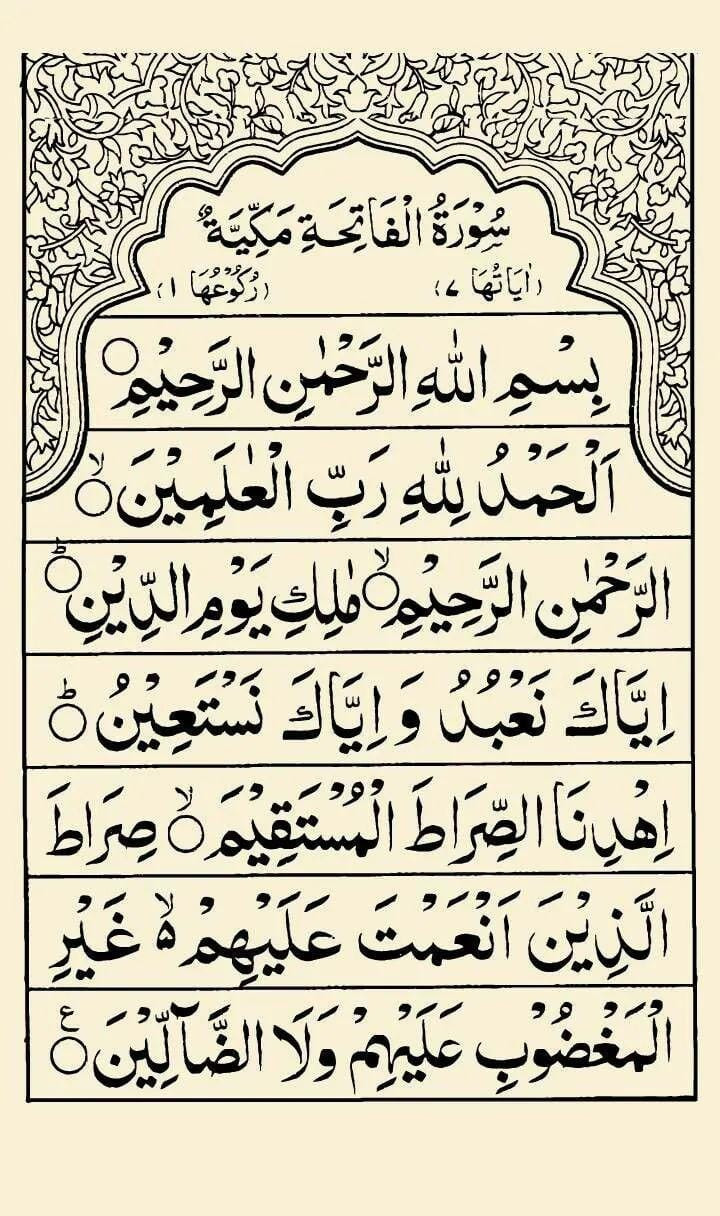 سُوْرَةُ الْفَاتِحَةِ مَكِّيَّةٌ
(اٰيَاتُهَا ۷) (رُكُوْعُهَا ۱)
بِسْمِ اللّٰهِ الرَّحْمٰنِ الرَّحِيْمِ○
اَلْحَمْدُ لِلّٰهِ رَبِّ الْعٰلَمِيْنَ○ۙ
الرَّحْمٰنِ الرَّحِيْمِ○ۙ مٰلِكِ يَوْمِ الدِّيْنِ○ؕ
اِيَّاكَ نَعْبُدُ وَ اِيَّاكَ نَسْتَعِيْنُ○ؕ
اِهْدِنَا الصِّرَاطَ الْمُسْتَقِيْمَ○ۙ صِرَاطَ
الَّذِيْنَ اَنْعَمْتَ عَلَيْهِمْ ۵ۙ غَيْرِ
الْمَغْضُوْبِ عَلَيْهِمْ وَلَا الضَّآلِّيْنَ○ع